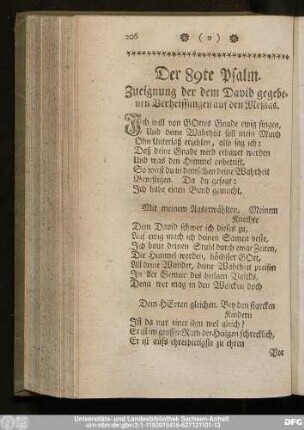 206 ( o )
Der 89te Psalm.
Zueignung der dem David gegebe-
nen Verheissungen auf den Meßias.
Ich will von GOttes Gnade ewig singen,
Und deine Wahrheit soll mein Mund
Ohn Unterlaß erzehlen, also sag ich:
Daß deine Gnade wird erbauet werden
Und was den Himmel anbetrift,
So wirst du in demselben deine Wahrheit
Bevestigen. Da du gesagt:
Ich habe einen Bund gemacht,
Mit meinem Auserwählten. Meinem
Knechte
Dem David schwer ich dieses zu,
Auf ewig mach ich deinen Samen veste,
Ich baue deinen Stuhl durch ewge Zeiten,
Die Himmel werden, höchster GOtt,
All deine Wunder, deine Wahrheit preisen
In der Gemeine des heilgen Volcks,
Denn wer mag in den Wolcken doch
Dem HErren gleichen. Bey den starcken
Kindern
Ist da nur einer ihm wol gleich?
Er ist im grossen Rath der Heilgen schrecklich,
Er ist aufs ehrerbietigste zu ehren
Vor
Universitäts- und Landesbibliothek Sachsen-Anhalt
urn:nbn:de:gbv:3:1-1192015415-637121101-13